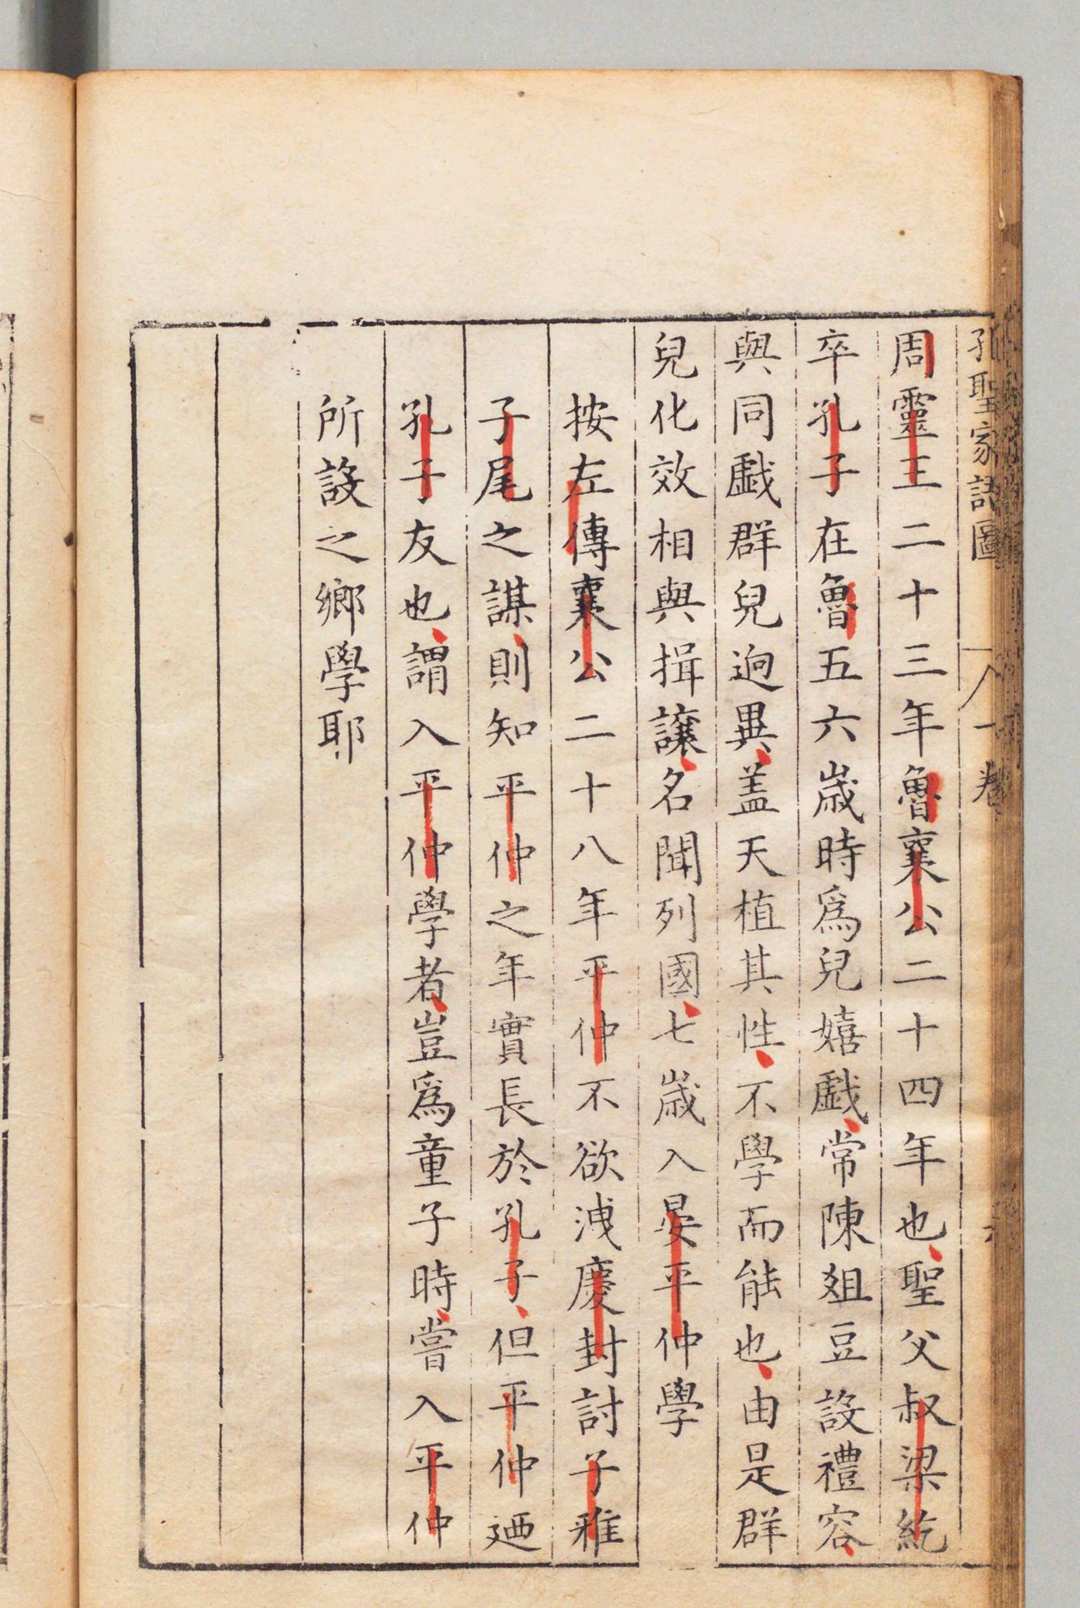 孔聖家語圖 一卷
周靈王二十三年魯襄公二十四年也聖父叔梁紇
卒孔子在魯五六歲時爲兒嬉戲常陳俎豆設禮容
與同戲群兒迥異盖天植其性不學而能也由是群
兒化效相與揖讓名聞列國七歲入晏平仲學
按左傳襄公二十八年平仲不欲洩慶封討子雅
子尾之謀則知平仲之年實長於孔子但平仲廼
孔子友也謂入平仲學者豈爲童子時嘗入平仲
所設之鄉學耶